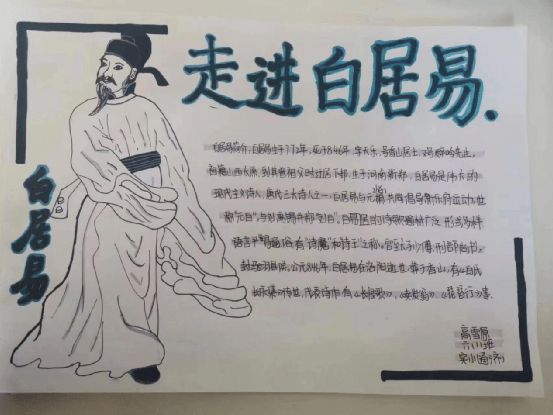 走进白居易.
白居易
白居易简介，白居易生于772年，死于846年，字乐天，号香山居士，
祖籍山西太原，到其曾祖父时迁居下邽，生于河南新郑。白居易是伟大的
现实主义诗人，唐代三大诗人之一。白居易与元稹共同倡导新乐府运动，世
称"元白"，与刘禹锡并称"刘白"。白居易的诗歌题材广泛，形式多样，
语言平易通俗，有"诗魔"和"诗王"之称。官至 少傅，刑部尚书，
封冯翊县侯。公元846年，白居易在洛阳逝世，葬于香山。有《白氏
长庆集》传世，代表诗作有《长恨歌》、《卖炭翁》、《琵琶行》等。
高雪原
六(1)班